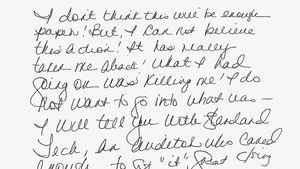 I don't think this will be enough
paper! But, I can not believe
this action! It has really
taken me aback! What I had
going on was killing me! I do
not want to go into what was —
I will tell you with Standard
Tech, an auditor who cared
enough to get "it", great